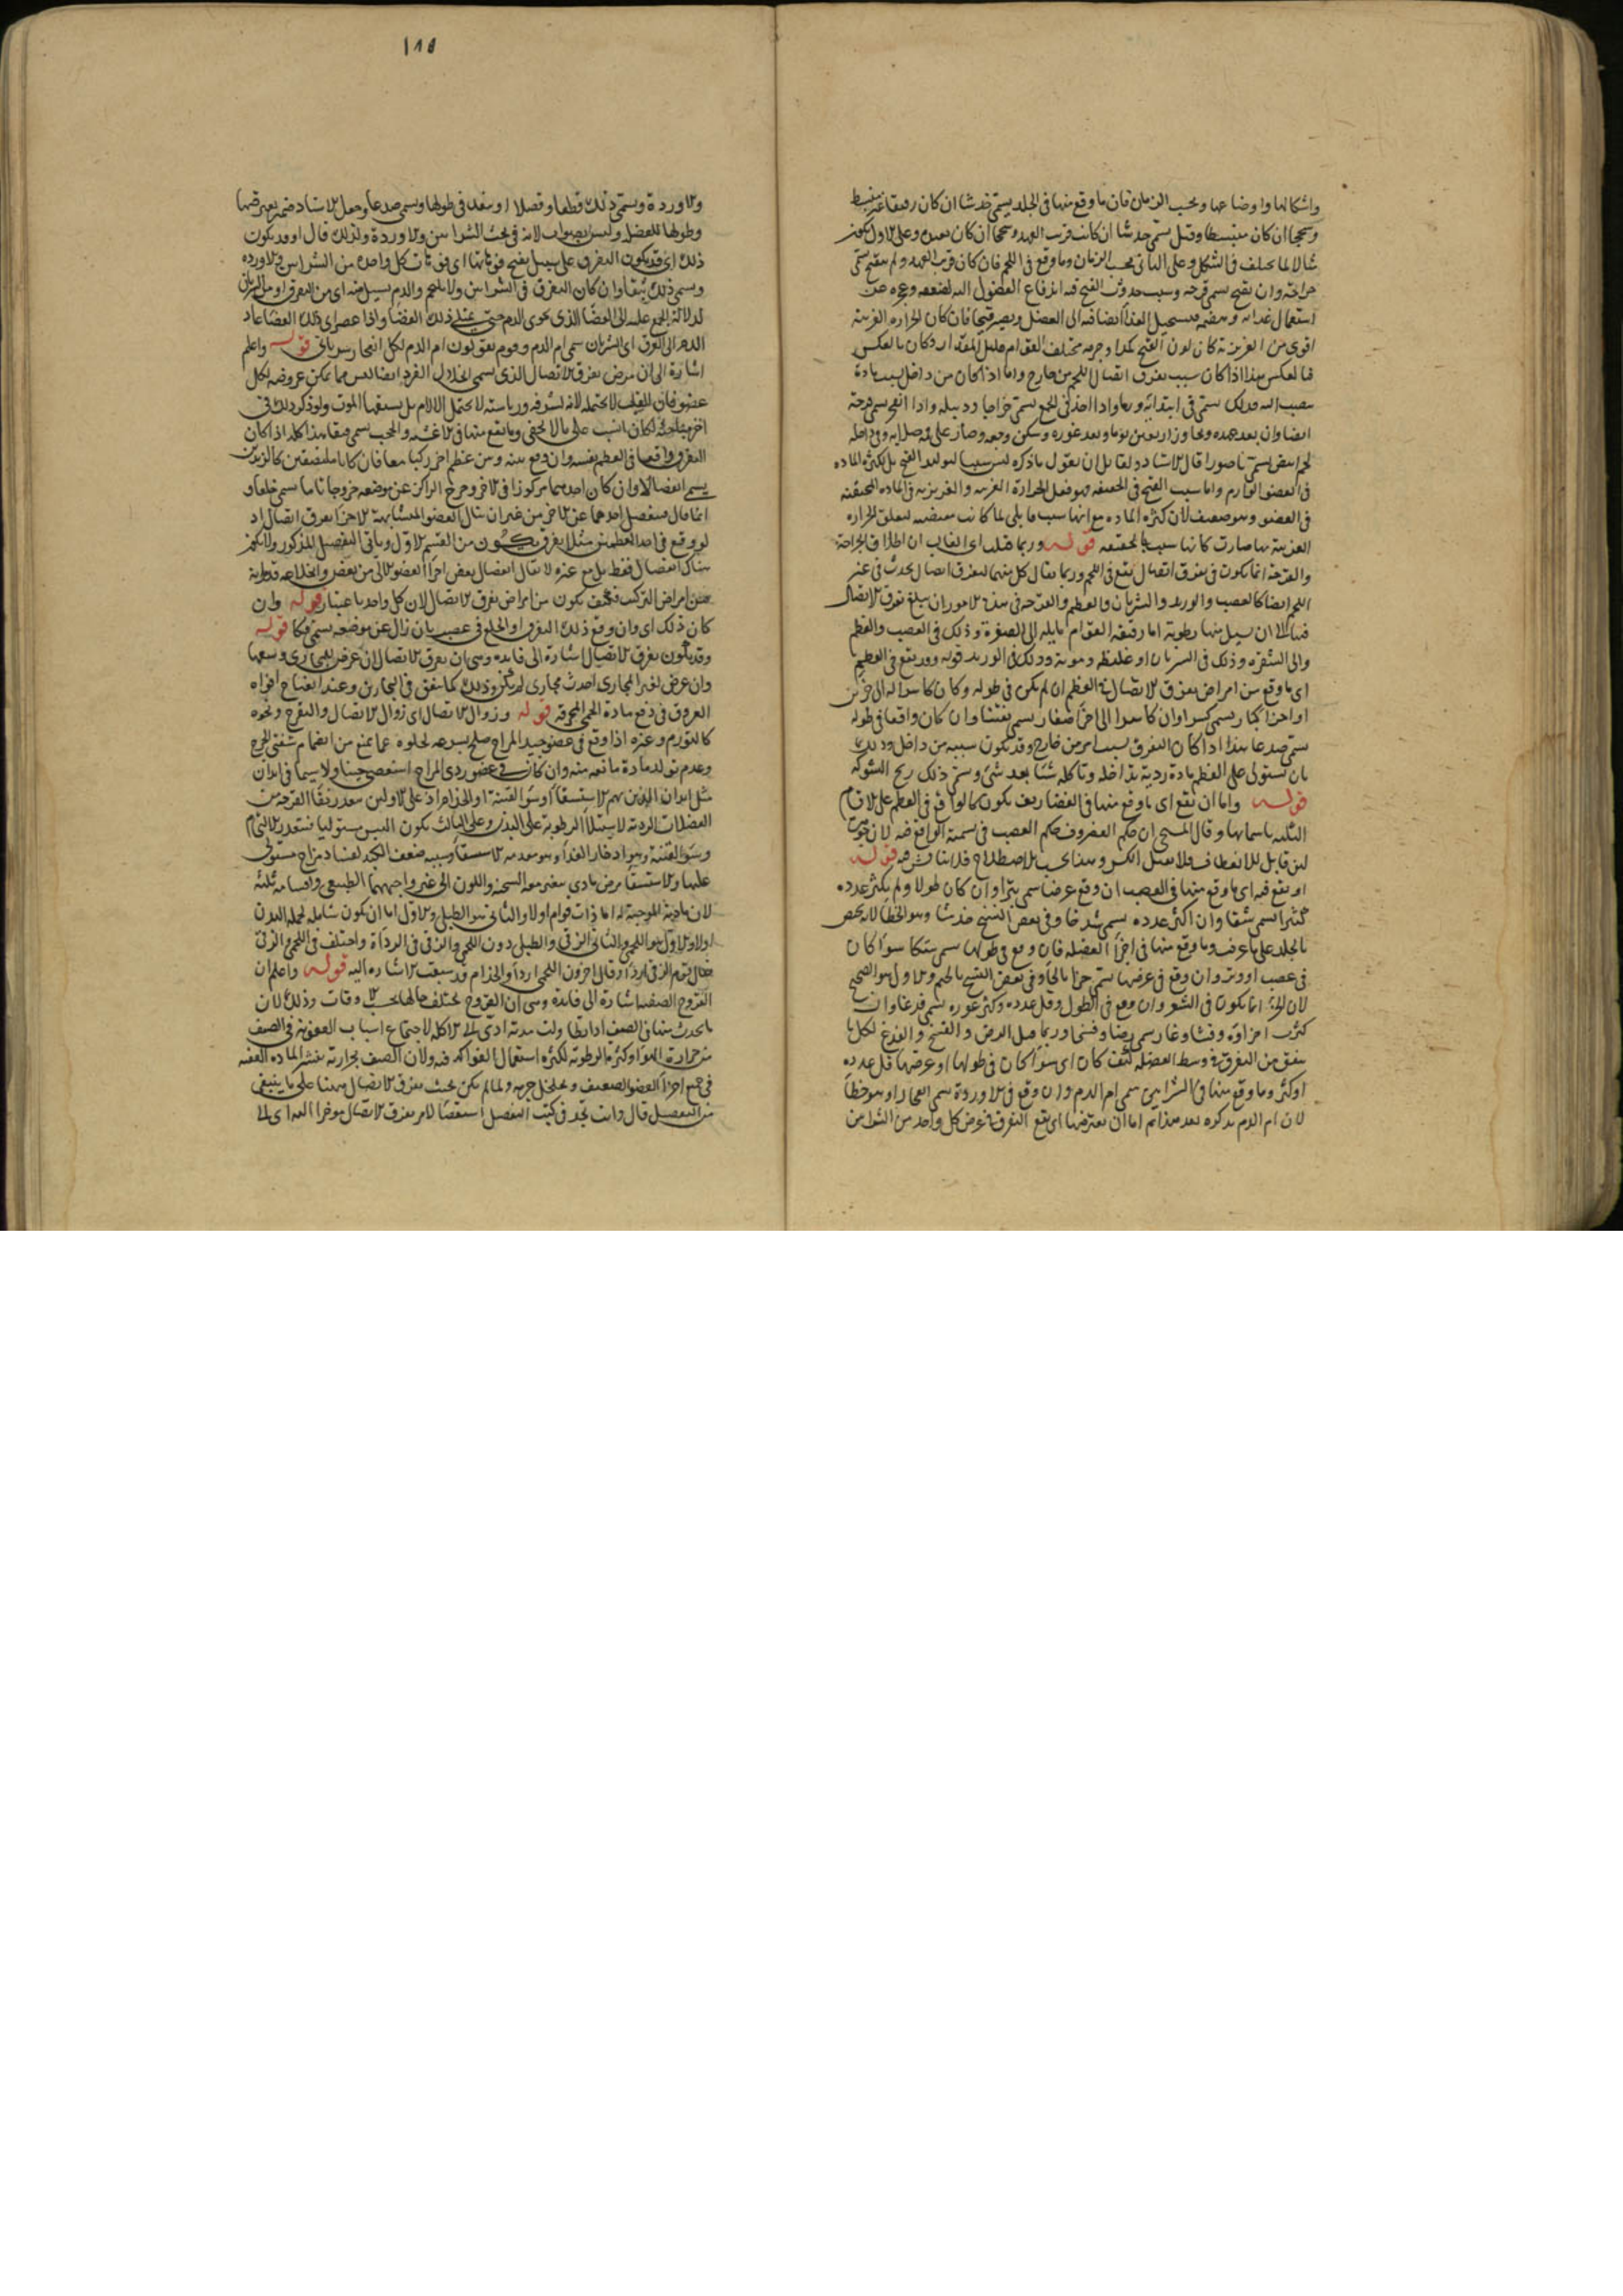 واشكالها واوضاعها وبحسب الزمان فان ما وقع منها في الجلد يسمى خدشا ان كان رقيقا غير منبسط
وسحجا ان كان منبسطا وقيل يسمى خدشا ان كانت قريب العهد وسحجا ان كان بعيده وعلى الاول يكون
مثالا لما يختلف في الشكل وعلى الثاني بحسب الزمان وما وقع في اللحم فان كان قريب العهد ولم يتقيح يسمى
جراحة وان تقيح يسمى قرحة وسبب حدوث القيح فيه اندفاع الفضول اليه لضعفه وعجزه عن
استعمال غذائه وهضمه فيستحيل الغذا ايضا فيه الى الفضل ويصير قيحا فان كان الحرارة الغريبة
اقوى من الغريزية كان لون القيح كمدا وجرمه مختلف القوام قليل المقدار وكان بالعكس
فبالعكس هذا اذا كان سبب تفرق اتصال اللحم من خارج واما اذا كان من داخل بسبب مادة
ايضا وان بعد عهده وتجاوز اربعين يوما وبعد غوره وسكن وجعه وصار على فمه صلابة وفي داخله
لحم ابيض يسمى ناصورا قال الاستاد ولقائل ان يقول ما ذكره ليس سببا لتوليد القيح بل لكثرة المادة
في العضو الوارم واما سبب القيح في الحقيقة فهو فعل الحرارة الغريبة والغريزية في المادة المحتقنة
في العضو وهو ضعيف لان كثرة المادة مع انها سبب
الغريبة بها صارت كانها سبب بالحقيقة قوله وربما قيلت اي الغالب ان اطلاق الجراحة
والقرحة انما يكون في تفرق اتصال يقع في اللحم وربما يقال كل منهما لتفرق اتصال يحدث في غير
اللحم ايضا كالعصب والوريد والشريان والعظم والقرحة في هذه الامور ان يبلغ تفرق الاتصال
فيها الى ان يسيل منها رطوبة اما رقيقة القوام مايلة الى الصفرة وذلك في العصب والعظم
والى الشقرة وذلك في الشريان او غليظة دموية وذلك في الوريد قوله وقد يقع في العظم
اي ما وقع من امراض تفرق الاتصال في العظم ان لم يكن في طوله وكان كاسرا له الى جزئين
او اجزا كبار يسمى كسرا وان كان كاسرا الى اجزا صغار يسمى تفتتا وان كان واقعا في طوله
يسمى صدعا هذا اذا كان التفرق بسبب امر من خارج وقد يكون سببه من داخل وذلك
بان يستولي على العظم مادة ردية تداخله وتاكله شيئا بعد شيء ويسمى ذلك ريح الشوكة
قوله واما ان يقع اي ما وقع منها في الغضاريف يكون كالواقع في العظم على الاقسام
الثلثة باسمائها وقال المسيحي ان حكم الغضروف حكم العصب في تسمية الواقع فيه لان
لين قابل للانعطاف فلا يقبل الكسر قوله
او يقع فيه اي ما وقع منها في العصب ان وقع عرضا سمي بترا وان كان طولا ولم يكثر عدده
كثيرا سمي شقا وان اكثر عدده يسمى شدخا وفي بعض النسخ خدشا وهو الخطا لانه يختص
بالجلد على ما عرفت وما وقع منها في اجزا العضلة فان وقع في طرفها سمي هتكا سوآ كان
في عصب او وتر وان وقع في عرضها يسمى جزا بالجيم وفي بعض النسخ بالحاء والاول هو الصحيح
لان الجز انما يكون في الشعر وان وقع في الطول وقل عدده وكثر غوره يسمى فدغا وان
كثرت اجزاؤه وفشا وغار سمي رضا وفسخا وربما قيل الرض والفسخ والفدغ لكل ما
يتفق من التفرق في وسط العضلة كيف كان اي سوآ كان في طولها او عرضها قل عدده
او كثر وما وقع منها في الشرايين سمي ام الدم وان وقع في الاوردة سمي انفجارا وهو خطا
لان ام الدم يذكره بعد هذا ثم اما ان يعترضها اي يقع التفرق في عرض كل واحد من الشرايين
١٨٨
والاوردة ويسمى ذلك قطعا وفصلا او ينفذ في طولها ويسمى صدعا وجعل الاستاد ضمير يعترضها
وطولها للعضل وليس بصواب لانه في بحث الشرايين والاوردة ولذلك قال او قد يكون
ذلك اي قد يكون التفرق على سبيل تفتح فوهاتها اي فوهات كل واحد من الشرايين والاوردة
ويسمى ذلك بثقا وان كان التفرق في الشرايين ولا يلتحم والدم يسيل منه اي من التفرق
الى الفضا الذي يحوي الدم حتى يمتلي ذلك الفضا واذا عصر اي ذلك الفضا عاد
الدم الى العرق اي الشريان سمي ام الدم وقوم يقولون ام الدم لكل انفجار شرياني قوله واعلم
اشارة الى ان مرض تفرق الاتصال الذي يسمى انحلال الفرد ايضا ليس مما يمكن عروضه لكل
عضو فان القلب لا يحتمله لانه لشرفه ورياسته لا يحتمل الالام بل يسبقها الموت ولو ذكر ذلك في
اخر هذا لكان انسب على ما لا يخفى وما يقع منها في الاغشية والحجب يسمى فتقا هذا كله اذا كان
التفرق واقعا في العظم نفسه وان وقع بينه وبين عظم اخر ركبا معا فان كانا ملتصقين كالزندين
يسمى انفصالا وان كان احدهما مركوزا في الاخر وخرج الراكز عن موضعه خروجا تاما سمي خلعا و
انما قال فينفصل احدهما عن الاخر من غير ان ينال العضو المتشابهة الاجزا تفرق اتصال اذ
لو وقع في احد العظمين مثلا تفرق يكون من القسم الاول وياتي التفصيل المذكور ولا يكون
هناك انفصال فقط بل مع غيره لا يقال انفصال بعض اجزا العضو الآلي من بعض وانخلاعه
من امراض التركيب فكيف يكون من امراض تفرق الاتصال لان كل واحد باعتبار قوله وان
كان ذلك اي وان وقع ذلك التفرق او الخلع في عصب بان زال عن موضعه يسمى فكا قوله
وقد يكون تفرق الاتصال اشارة الى فايده وهي ان تفرق الاتصال ان عرض للمجاري وسعها
وان عرض لغير المجاري احدث مجاري لم يكن وذلك كما يتفق في البحارين وعند انفتاح افواه
العروق في دفع مادة الحمى المحرقة قوله وزوال الاتصال اي زوال الاتصال والتقرح ونحوه
كالتورم وغيره اذا وقع في عضو جيد المزاج صلح بسرعة لخلوه عما يمنع من انضمام شفتي الجرح
وعدم تولد مادة مانعة منه وان كان في عضو ردي المزاج استعصى حينا ولا سيما في ابدان
مثل ابدان الذين بهم الاستسقا او سوء القنية او الجذام اذ على الاولين
الفضلات الردية لاستيلا الرطوبة على البدن وعلى الثالث يكون اليبس مستوليا فيتعذر الالتيام
وسوء القنية وهو مقدمة الاستسقا وسببه ضعف الكبد لفساد مزاج مستولي
عليها والاستسقا مرض مادي يتغير معه السحنة واللون الى غير واجبهما الطبيعي واقسامه ثلثة
لان مادية الموجبة له اما ذات قوام اولا والثاني هو الطبلي والاول اما ان يكون شاملة لجملة البدن
اولا والاول هو اللحمي والثاني الزقي والطبلي دون اللحمي والزقي في الرداة واختلف في اللحمي والزقي
فقال قوم الزقي اردأ وقال اخرون اللحمي اردأ والجذام قد سبقت الاشارة اليه قوله واعلم ان
القروح الصيفية اشارة الى فايدة وهي ان القروح تختلف حالها بحسب الاوقات وذلك لان
ما يحدث منها في الصيف اذا تطاولت مدته ادى الى الاكلة لاجتماع اسباب العفونة في الصيف
من حرارة الهوا وكثرة الرطوبة لكثرة استعمال الفواكه فيه ولان الصيف بحرارته ينشر المادة العفنة
في جميع اجزا العضو الضعيف وتخلخل جرمه ولما لم يكن بحث تفرق الاتصال ههنا على ما ينبغي
من التفصيل قال وانت تجد في كتب التفصيل استقصا لامر تفرق الاتصال موخرا اليه اي الى